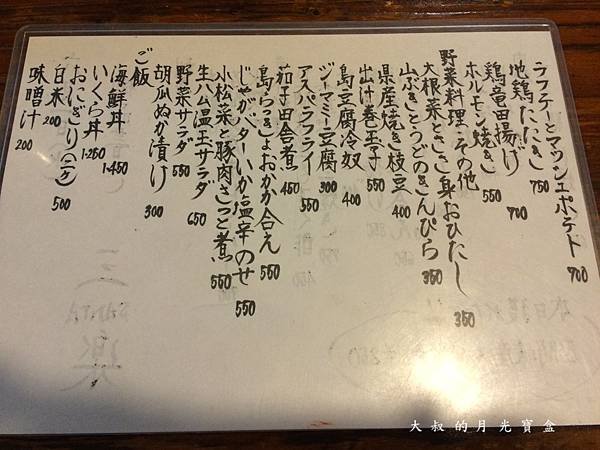 ラフテーとマッシュポテト 700
地鶏たたき 750
鶏竜田揚げ 700
ホルモン焼き 550
野菜料理・その他
大根菜とささ身おひたし 350
山ぶきとうどのきんぴら 350
県産焼き枝豆 400
出汁巻玉子 550
島豆腐冷奴 400
ジーマミー豆腐 300
アスパラフライ 550
茄子田舎煮 450
島らっきょおかか合え 550
じゃがバターいか塩辛のせ 550
小松菜と豚肉さっと煮 550
生ハム温玉サラダ 650
野菜サラダ 550
胡瓜ぬか漬け 300
ご飯
海鮮丼 1,450
いくら丼 1,250
おにぎり(二ヶ) 500
白米 200
味噌汁 200
大叔的月光寶盒